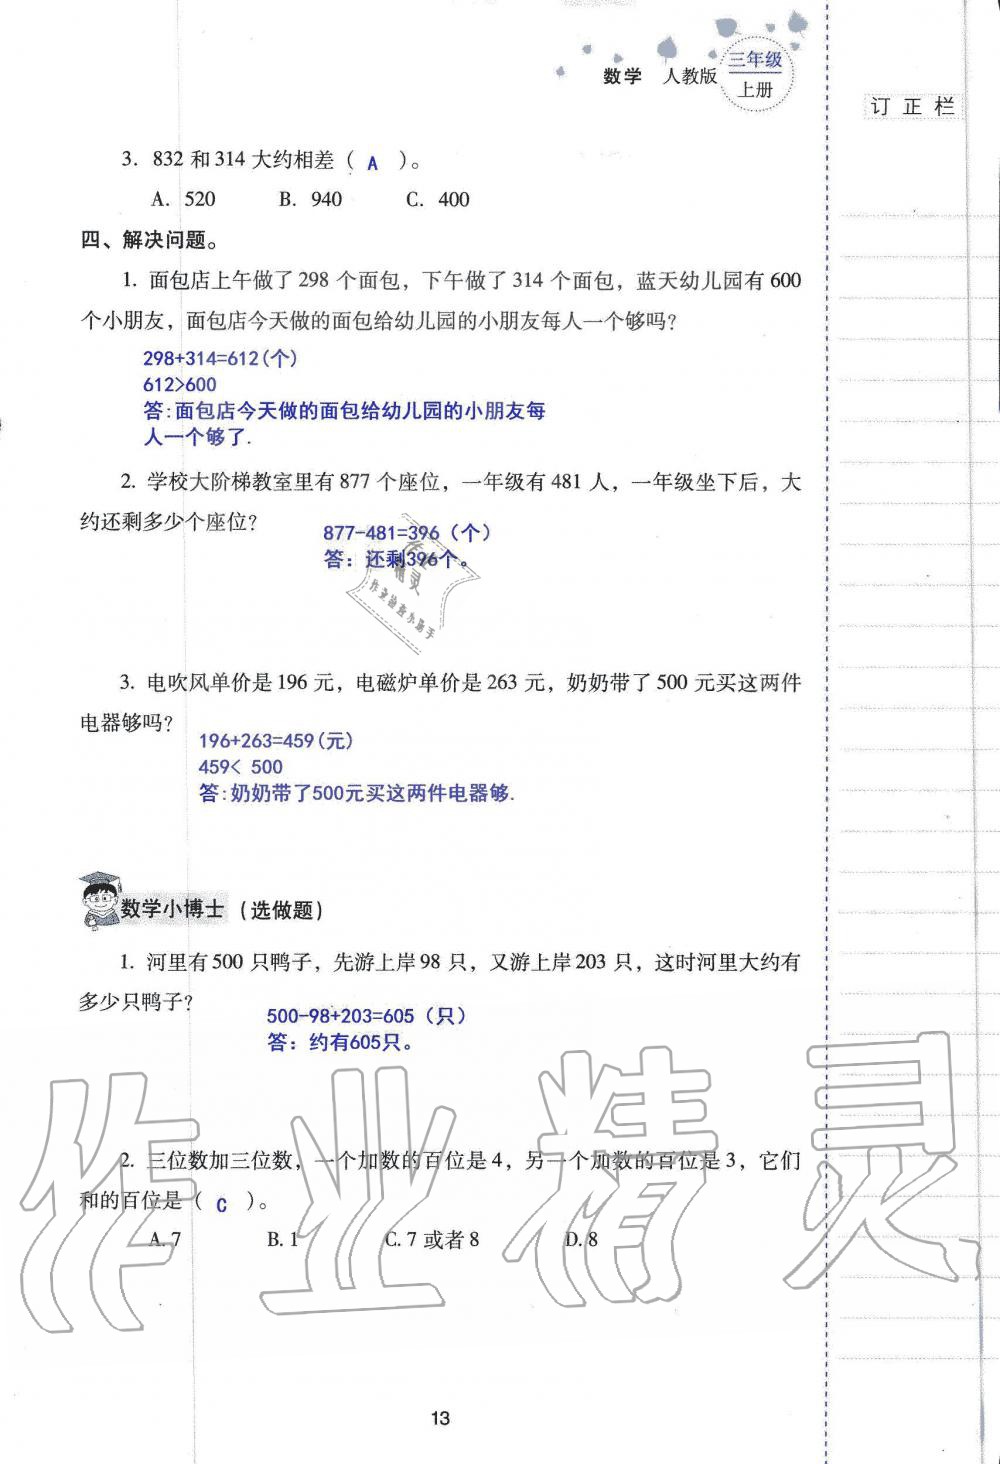 数学 人教版 三年级
上册
订正栏
3. 832 和 314 大约相差（ A ）。
A. 520 B. 940 C. 400
四、解决问题。
1. 面包店上午做了 298 个面包，下午做了 314 个面包，蓝天幼儿园有 600
个小朋友，面包店今天做的面包给幼儿园的小朋友每人一个够吗？
298+314=612(个)
612>600
答:面包店今天做的面包给幼儿园的小朋友每
人一个够了.
2. 学校大阶梯教室里有 877 个座位，一年级有 481 人，一年级坐下后，大
约还剩多少个座位？
877-481=396（个）
答：还剩396个。
作业
精灵
作业检查小助手
3. 电吹风单价是 196 元，电磁炉单价是 263 元，奶奶带了 500 元买这两件
电器够吗？
196+263=459(元)
459< 500
答:奶奶带了500元买这两件电器够.
数学小博士（选做题）
1. 河里有 500 只鸭子，先游上岸 98 只，又游上岸 203 只，这时河里大约有
多少只鸭子？
500-98+203=605（只）
答：约有605只。
作业精灵
2. 三位数加三位数，一个加数的百位是 4，另一个加数的百位是 3，它们
和的百位是（ C ）。
A. 7 B. 1 C. 7 或者 8 D. 8
13